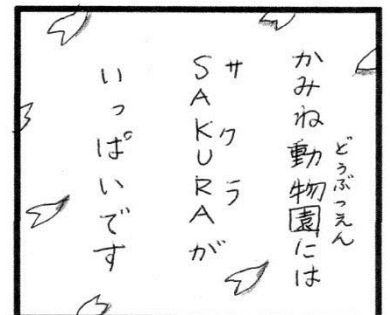 かみね動物園には
どうぶつえん
SAKURAが
サクラ
いっぱいです